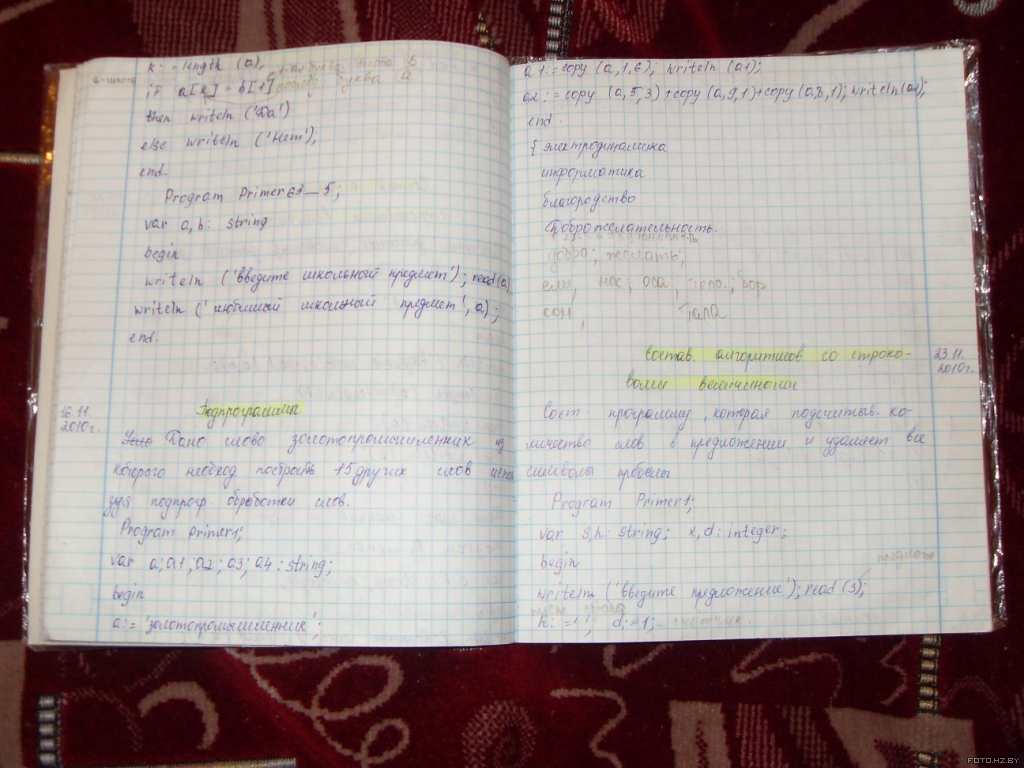 k: = length (a);
if a[k] = b[1]
then writeln ('Да')
else writeln ('Нет');
end.
Program Primer63_5;
var a,b: string
begin
writeln ('введите школьный предмет'); read(a)
writeln ('любимый школьный предмет', a);
end.
16.11.
2010г.
Подпрограммы
Дано слово золотопромышленник из
которого необход. построить 15 других слов исполь
зуя подпрогр. обработки слов.
Program primer1;
var a; a1; a2; a3; a4: string;
begin
a: = 'золотопромышленник';
a1:=copy (a,1,6); writeln (a1);
a2:=copy (a,5,3)+copy(a,9,1)+copy(a,8,1); writeln(a2);
end.
{ электродинамика
информатика
благородство
Доброжелательность.
добро; желать;
ель, нос; оса; тело; бор
сон, Тапа
Состав. алгоритмов со строко-
выми величинами
23.11.
2010г.
Сост. программу, которая подсчитыв. ко-
личество слов в предложении и удаляет все
символы пробелы
Program Primer1;
var s,h: string; k,d: integer;
begin
предлож
writeln ('введите предложение'); read (s);
h: =' '; d:=1; счетчик